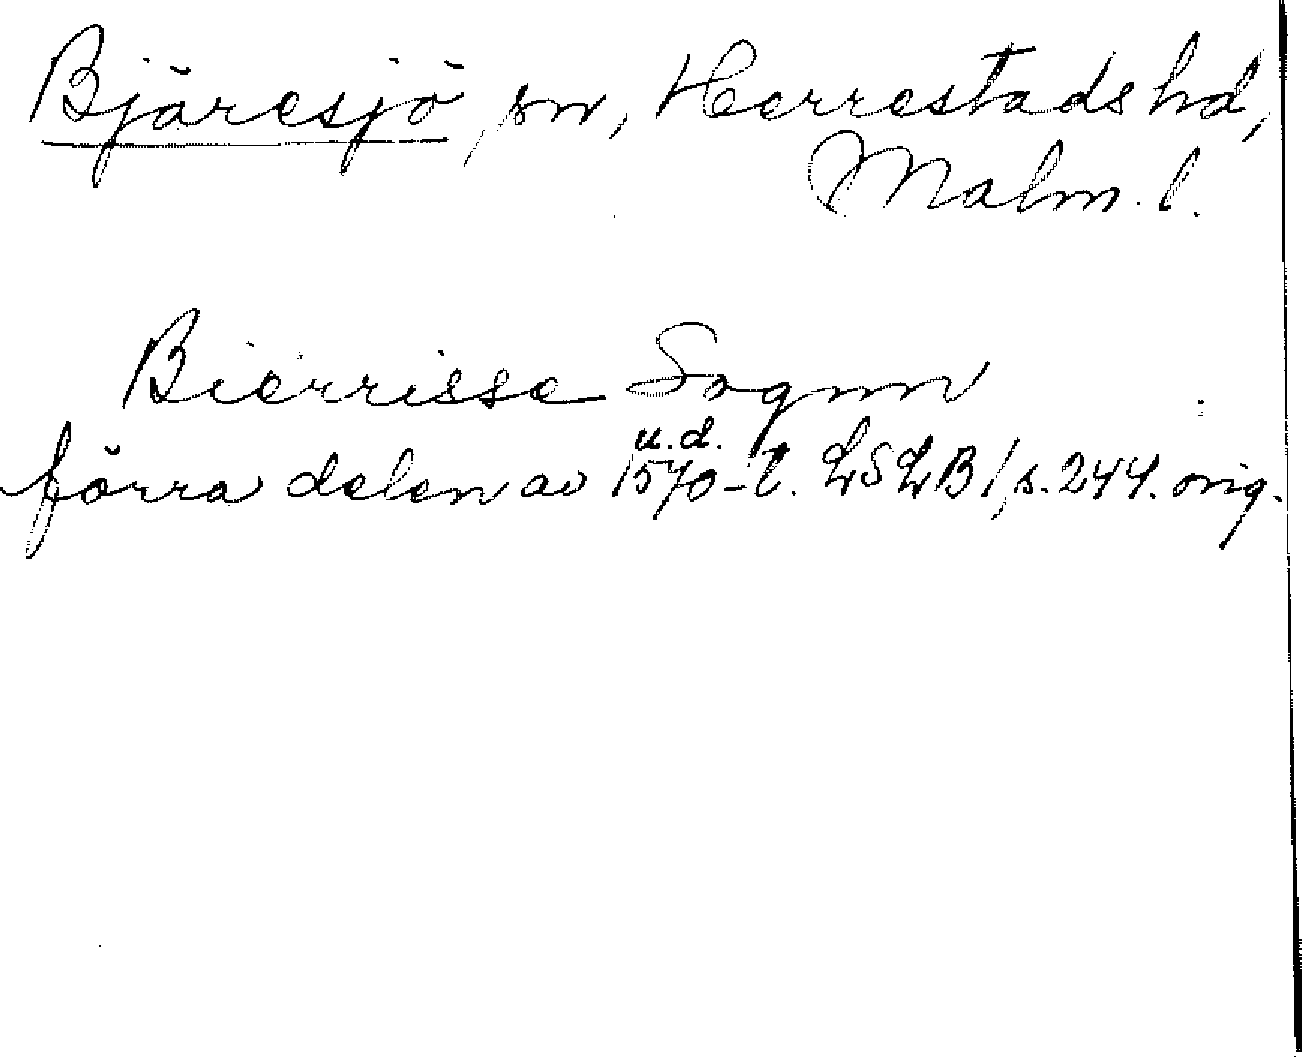 Bjäresjö, sn, Herrestads hd,
Malm. l.
Bierrisse Sognn
u.d.
förra delen av 1570-t. LSLB 1, s. 244. orig.